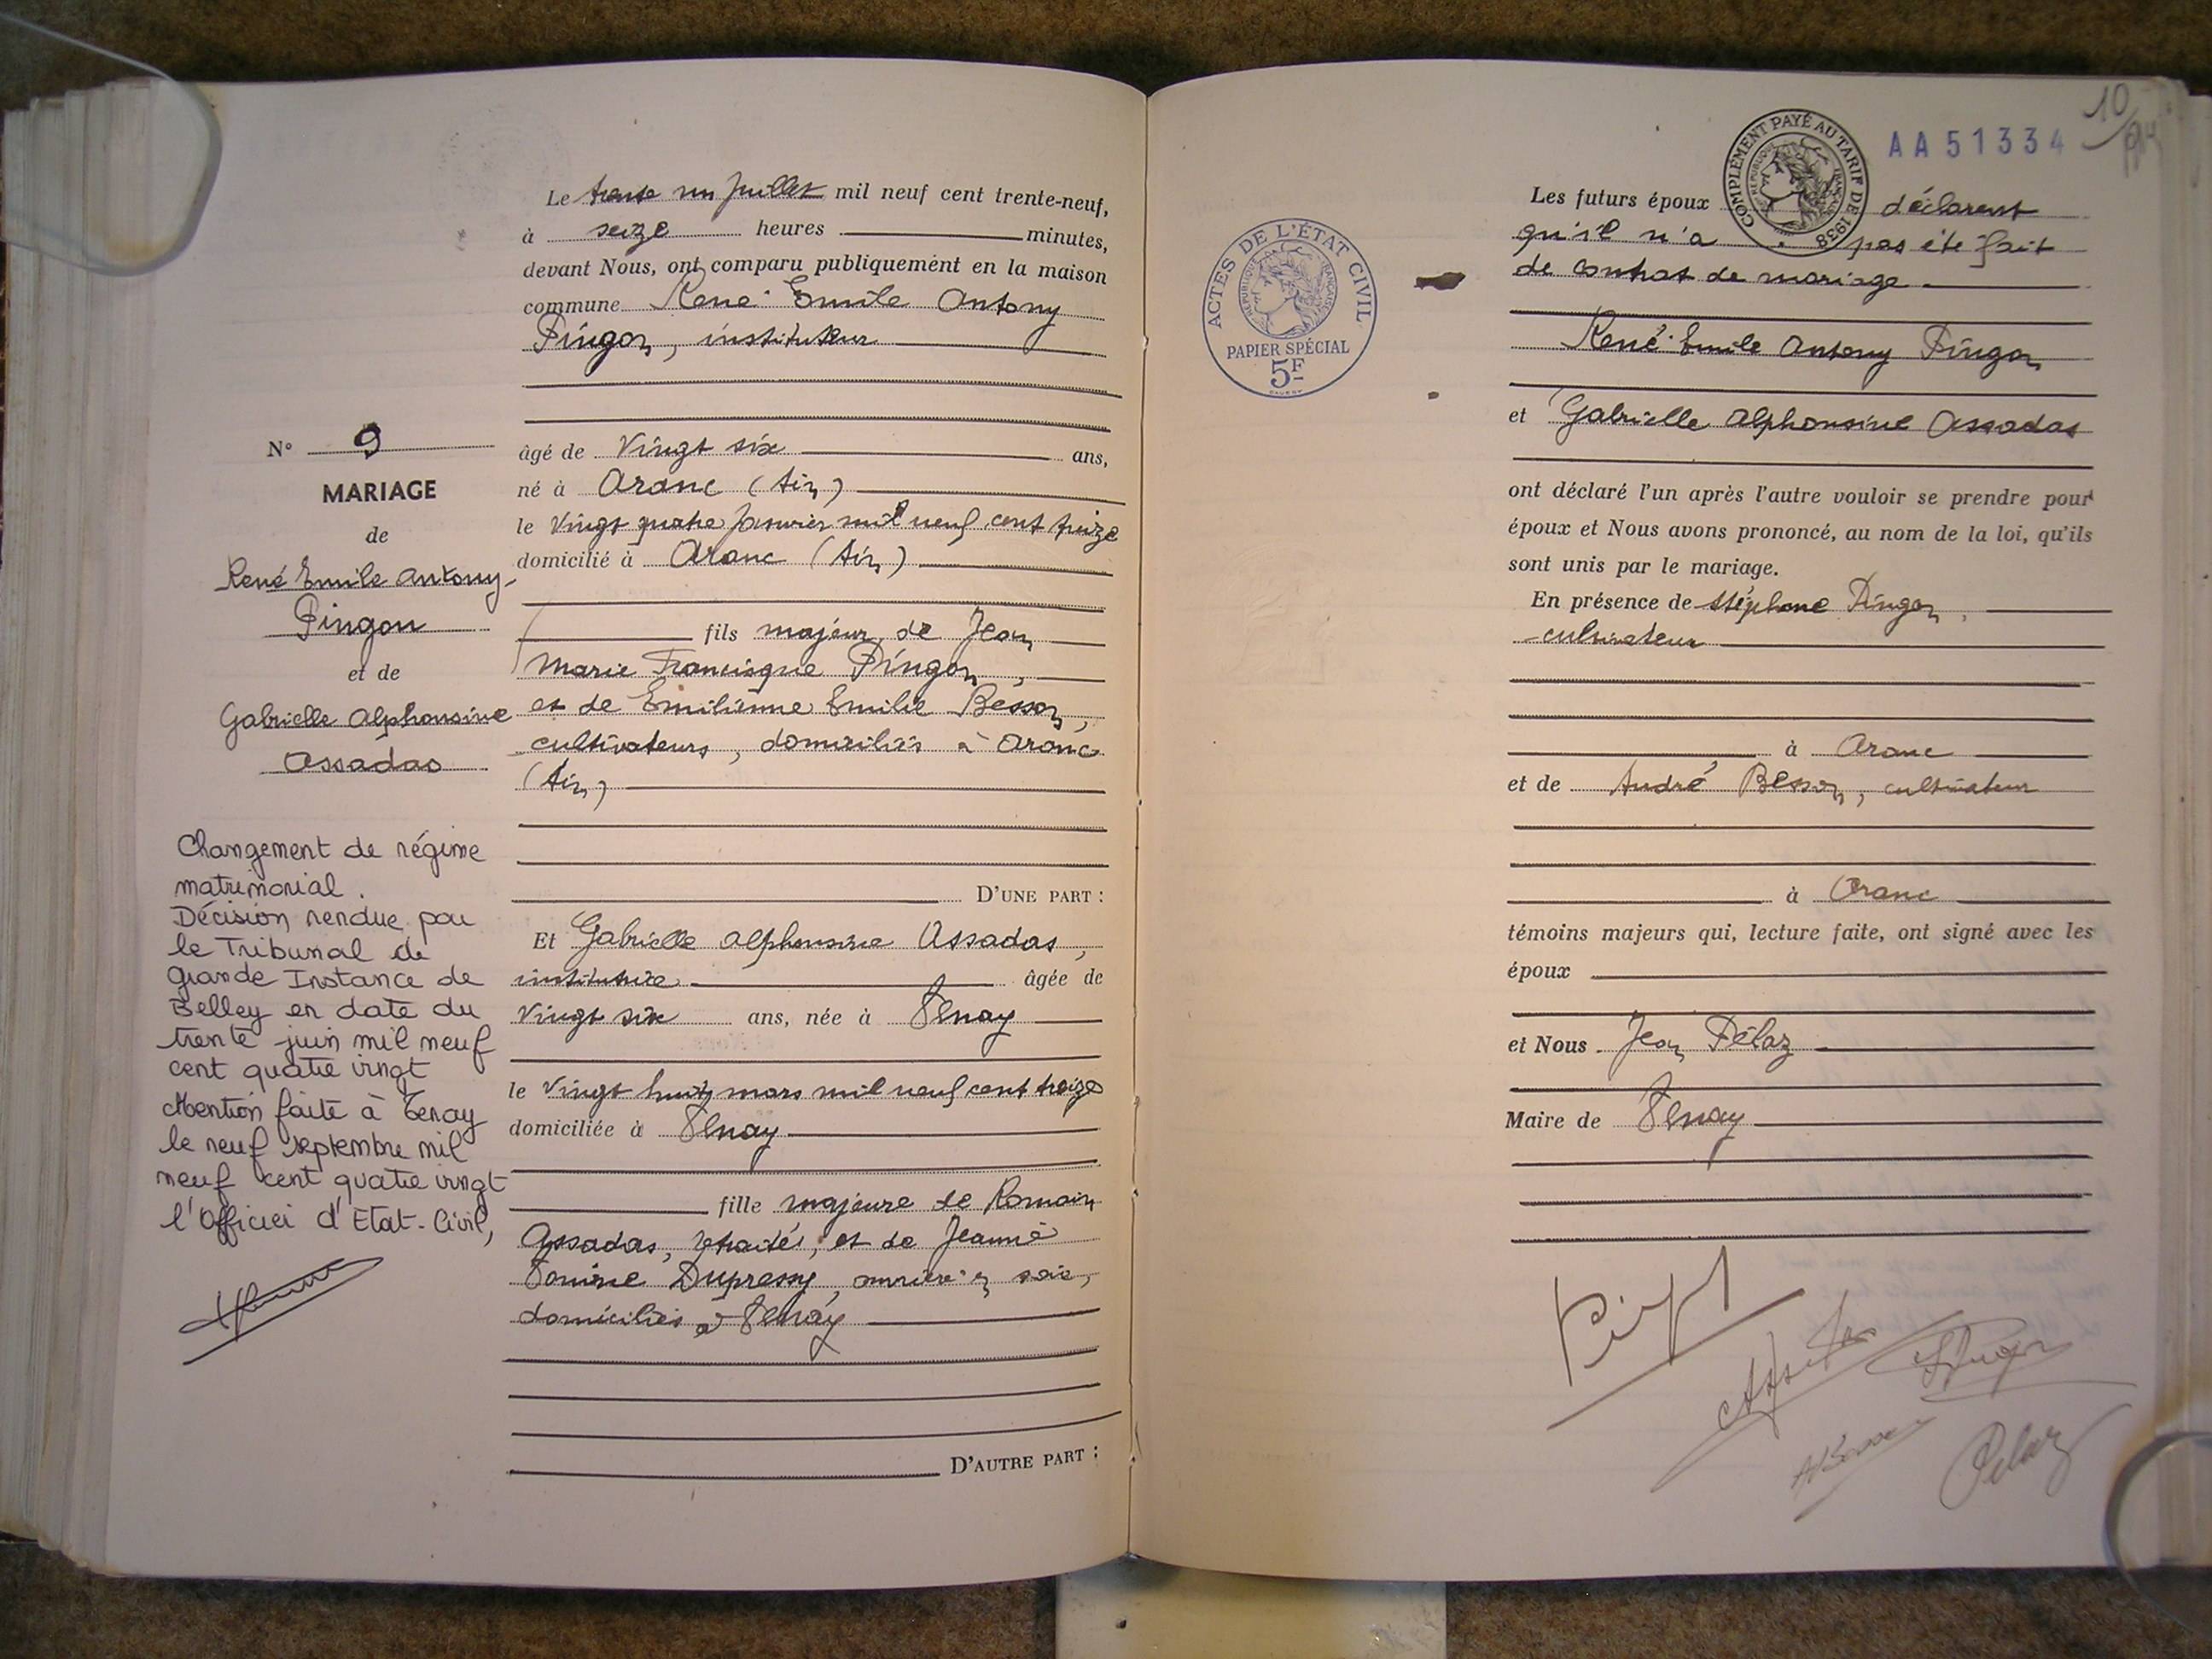 Le trente un juillet mil neuf cent trente-neuf,
à seize heures minutes,
devant Nous, ont comparu publiquement en la maison
commune René Emile Antony
Pingon, instituteur
âgé de Vingt six ans,
né à Aranc (Ain)
le Vingt quatre Janvier mil neuf cent treize
domicilié à Aranc (Ain)
fils majeur de Jean
Marie Francisque Pingon,
et de Emilienne Emilie Besson,
cultivateurs, domiciliés à Aranc
(Ain)
D'UNE PART :
Et Gabrielle Alphonsine Assadas,
institutrice âgée de
Vingt six ans, née à Tenay
le Vingt huit mars mil neuf cent treize
domiciliée à Tenay
fille majeure de Romain
Assadas, retraité, et de Jeanne
Dupressy, ouvrière en soie,
domiciliés à Tenay
D'AUTRE PART :
N° 9
MARIAGE
de
René Emile Antony
Pingon
et de
Gabrielle Alphonsine
Assadas
Changement de régime
matrimonial.
Décision rendue par
le Tribunal de
Grande Instance de
Belley en date du
trente juin mil neuf
cent quatre vingt
Mention faite à Tenay
le neuf septembre mil
neuf cent quatre vingt
l'Officier d'Etat-Civil,
ACTES DE L'ÉTAT CIVIL
RÉPUBLIQUE FRANÇAISE
PAPIER SPÉCIAL
5F
COMPLÉMENT PAYÉ AU TARIF DE 1938
RÉPUBLIQUE FRANÇAISE
AA51334
10
Les futurs époux déclarent
qu'il n'a pas été fait
de contrat de mariage
René Emile Antony Pingon
et Gabrielle Alphonsine Assadas
ont déclaré l'un après l'autre vouloir se prendre pour
époux et Nous avons prononcé, au nom de la loi, qu'ils
sont unis par le mariage.
En présence de Stéphane Pingon,
cultivateur
à Aranc
et de André Besson, cultivateur
à Aranc
témoins majeurs qui, lecture faite, ont signé avec les
époux
et Nous Jean Pélaz
Maire de Tenay
Pelaz